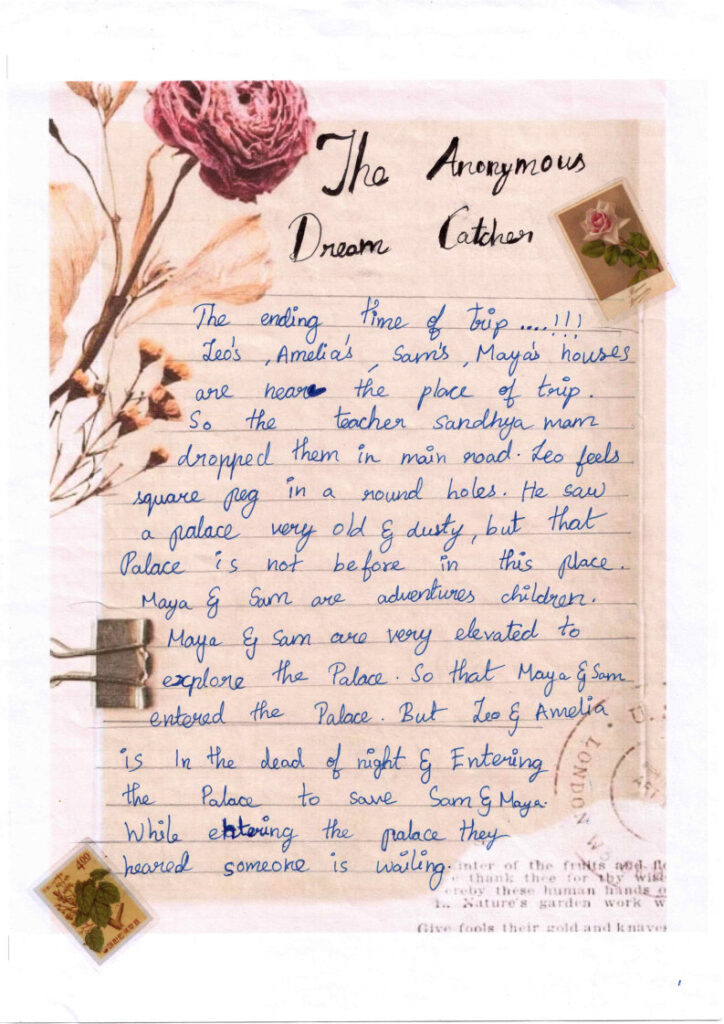 The Anonymous
Dream Catcher
The ending time of trip ....!!!
Leo's, Amelia's, Sam's, Maya's houses
are near the place of trip.
So the teacher sandhya mam
dropped them in main road. Leo feels
square peg in a round holes. He saw
a palace very old & dusty, but that
Palace is not before in this place.
Maya & Sam are adventures children.
Maya & Sam are very elevated to
explore the Palace. So that Maya & Sam
entered the Palace. But Leo & Amelia
is In the dead of night & Entering
the Palace to save Sam & Maya.
While entering the palace they
heared someone is wailing.
400
LONDON
inter of the fruits and
thank thee for thy
ereby these human hands
In Nature's garden work
Give fools their gold and knaves